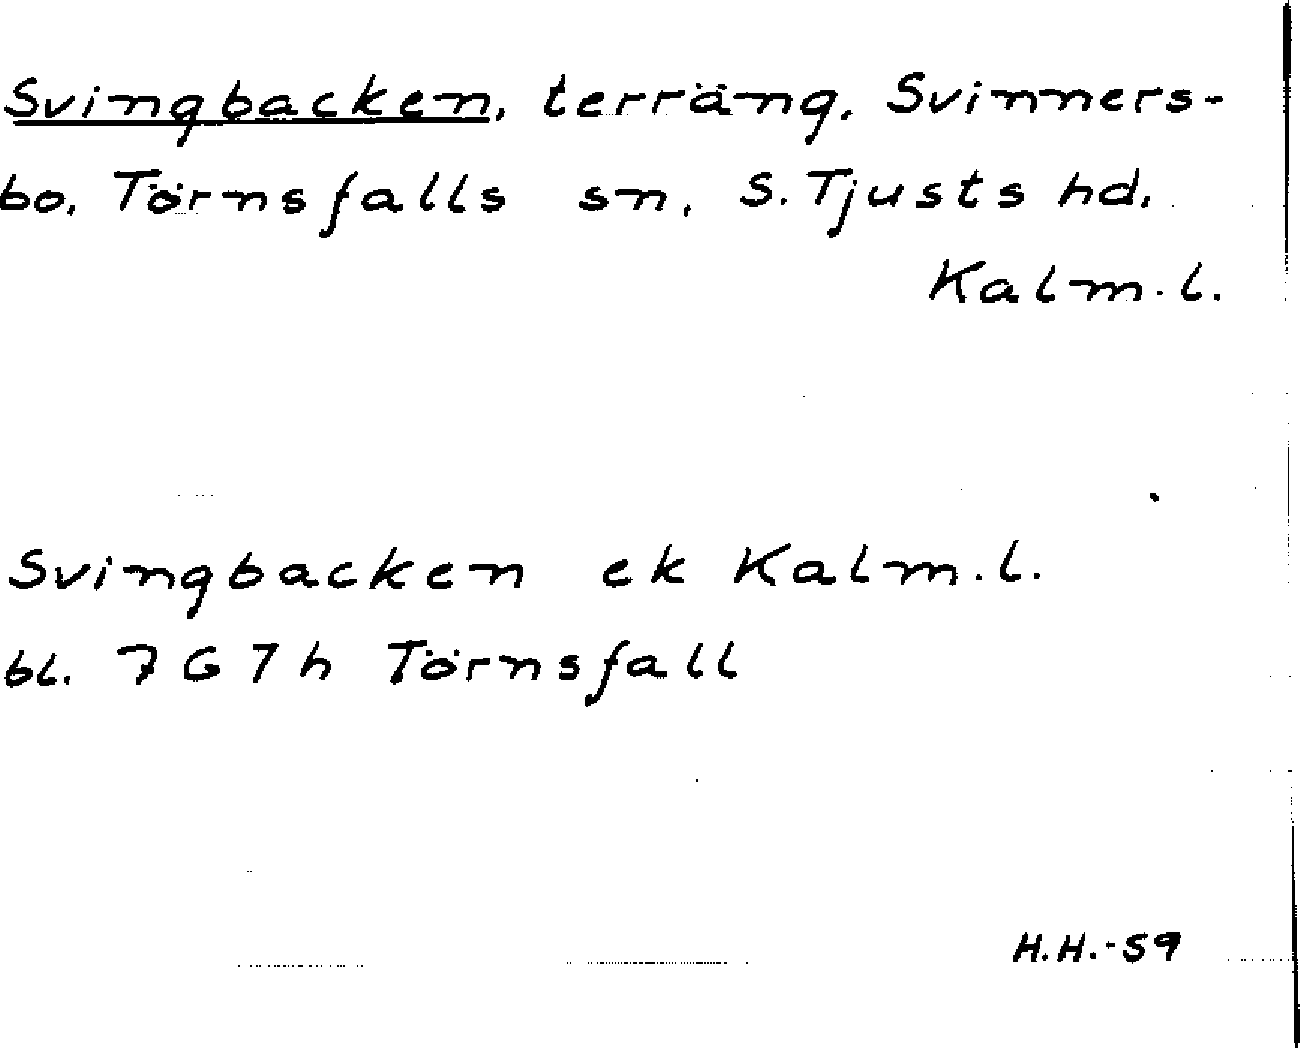 Svingbacken, terräng, Svinners-
bo, Törnsfalls sn, S. Tjusts hd,
Kalm. l.
Svingbacken ek Kalm. l.
bl. 7 G 7 h Törnsfall
H.H.-59